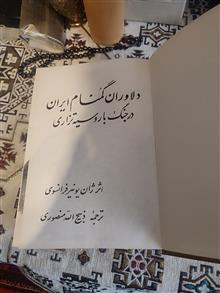 دلاوران گمنام ایران
در جنگ با روسیه تزاری
اثر ژان یونیر فرانسوی
ترجمه ذبیح الله منصوری